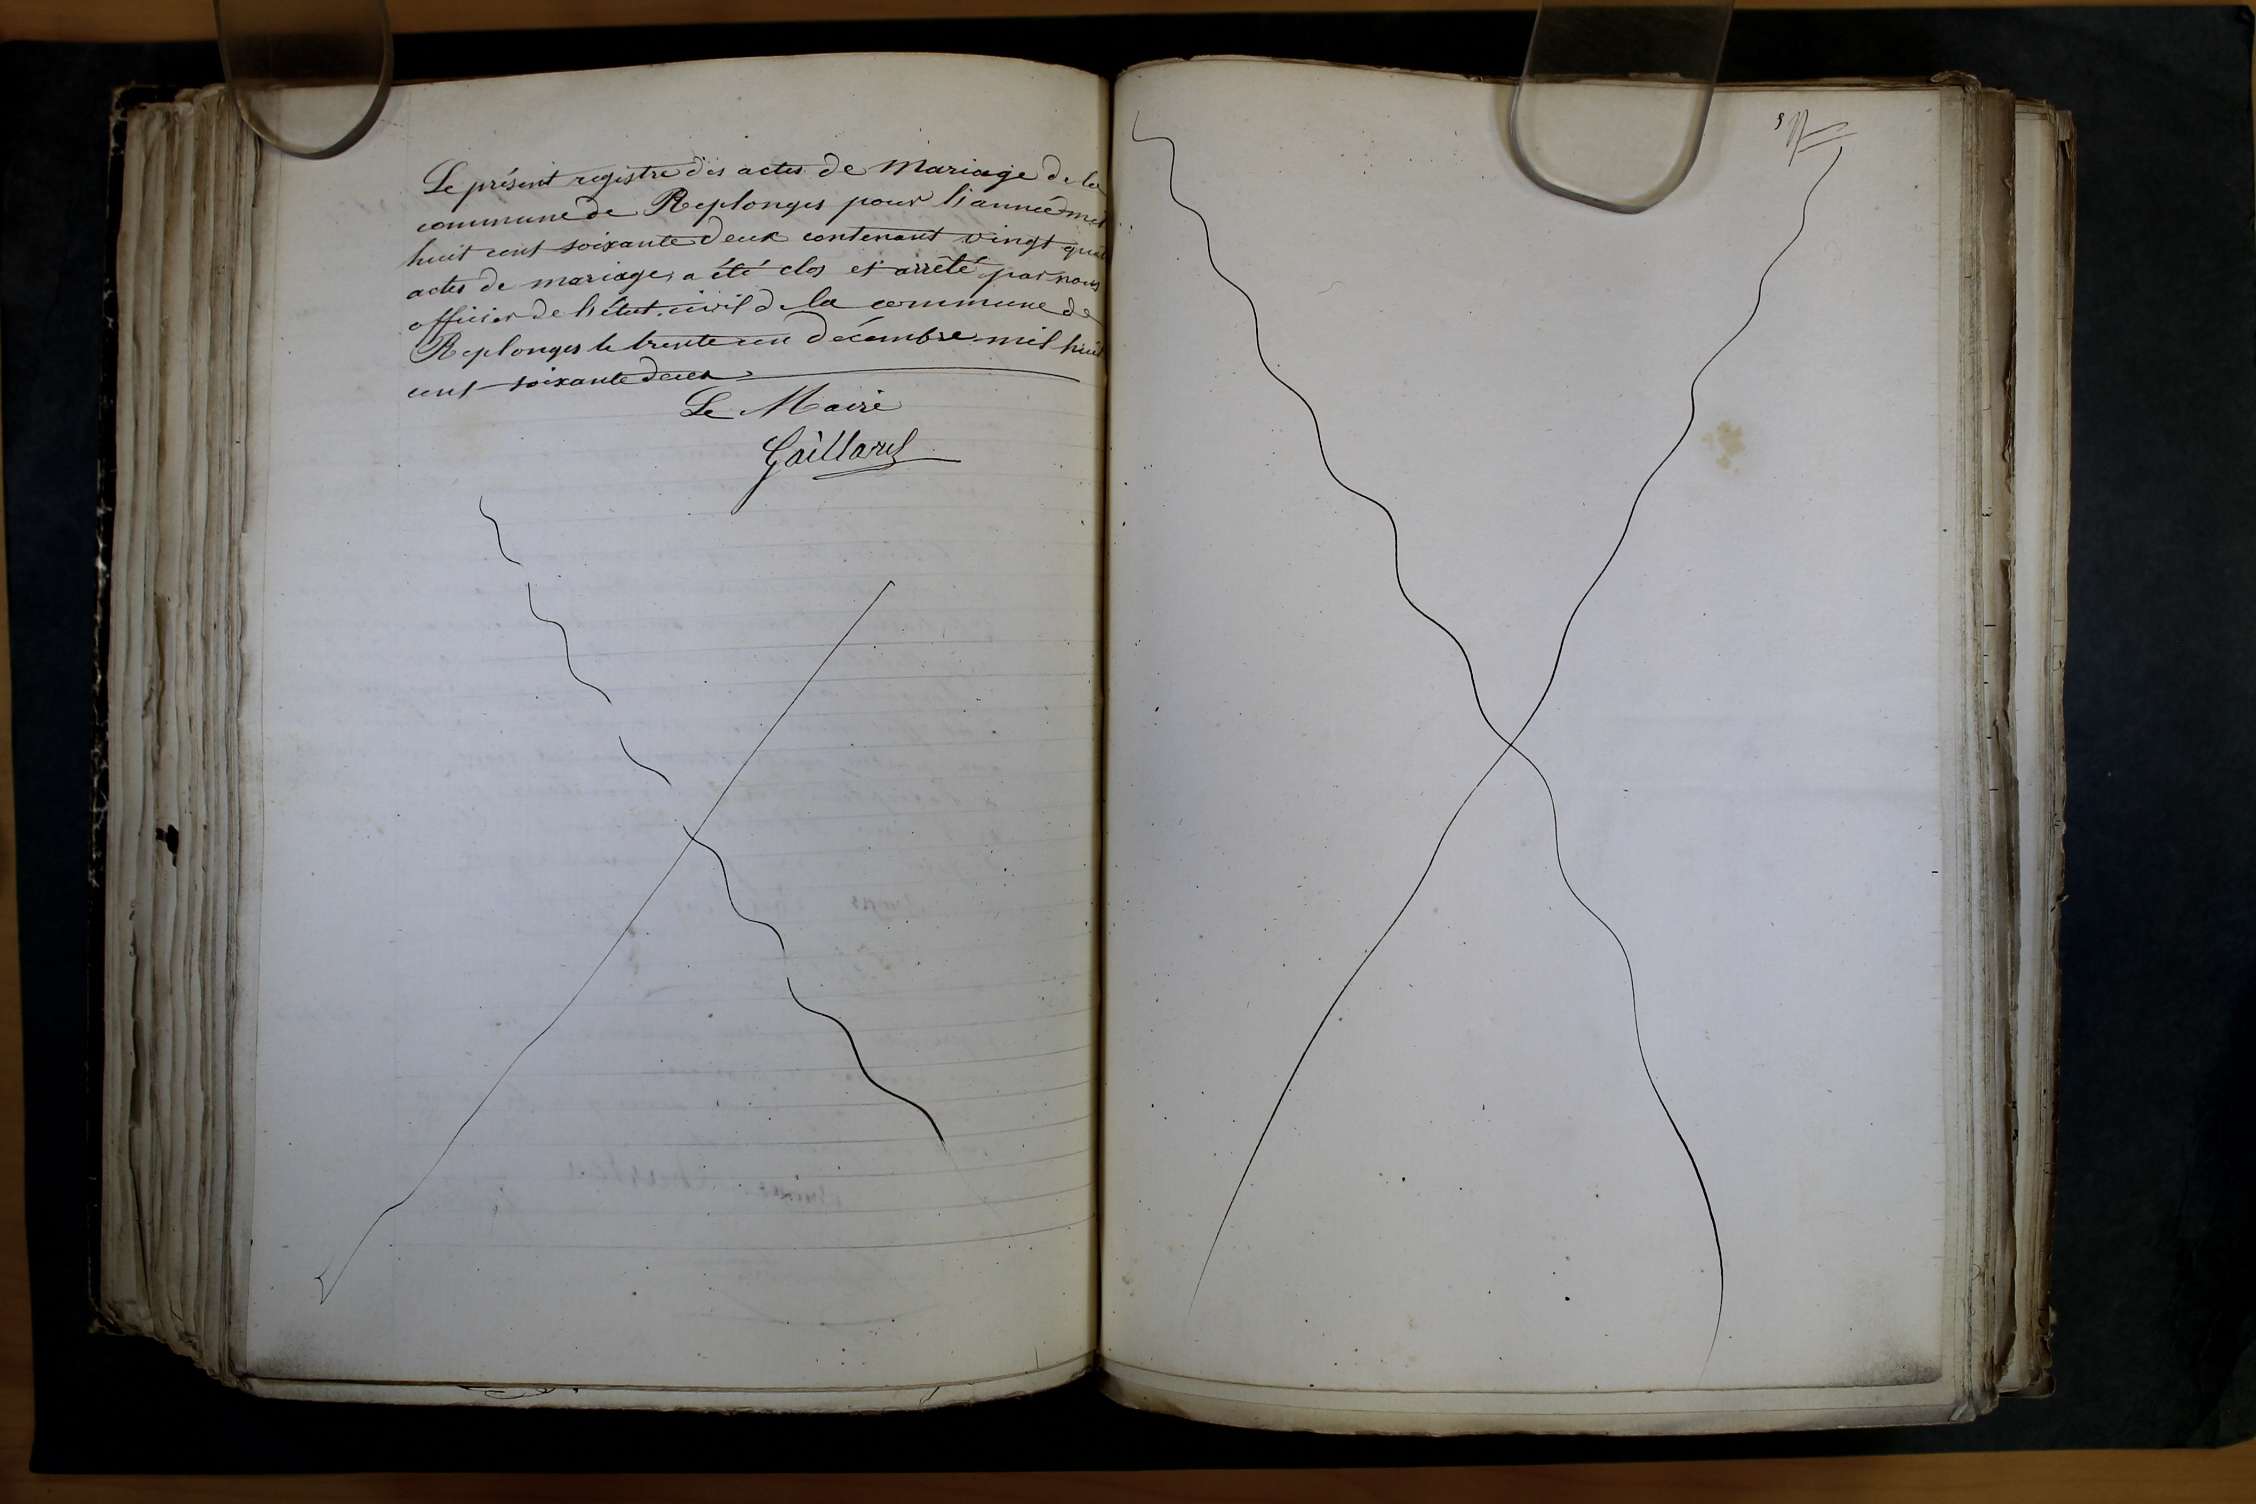 Le présent registre des actes de Mariage de la
commune de Replonges pour l'année mil
huit cent soixante deux contenant vingt
actes de mariage, a été clos et arrêté par nous
officier de l'état-civil de la commune de
Replonges le trente un Décembre mil huit
cent soixante deux
Le Maire
Gaillard